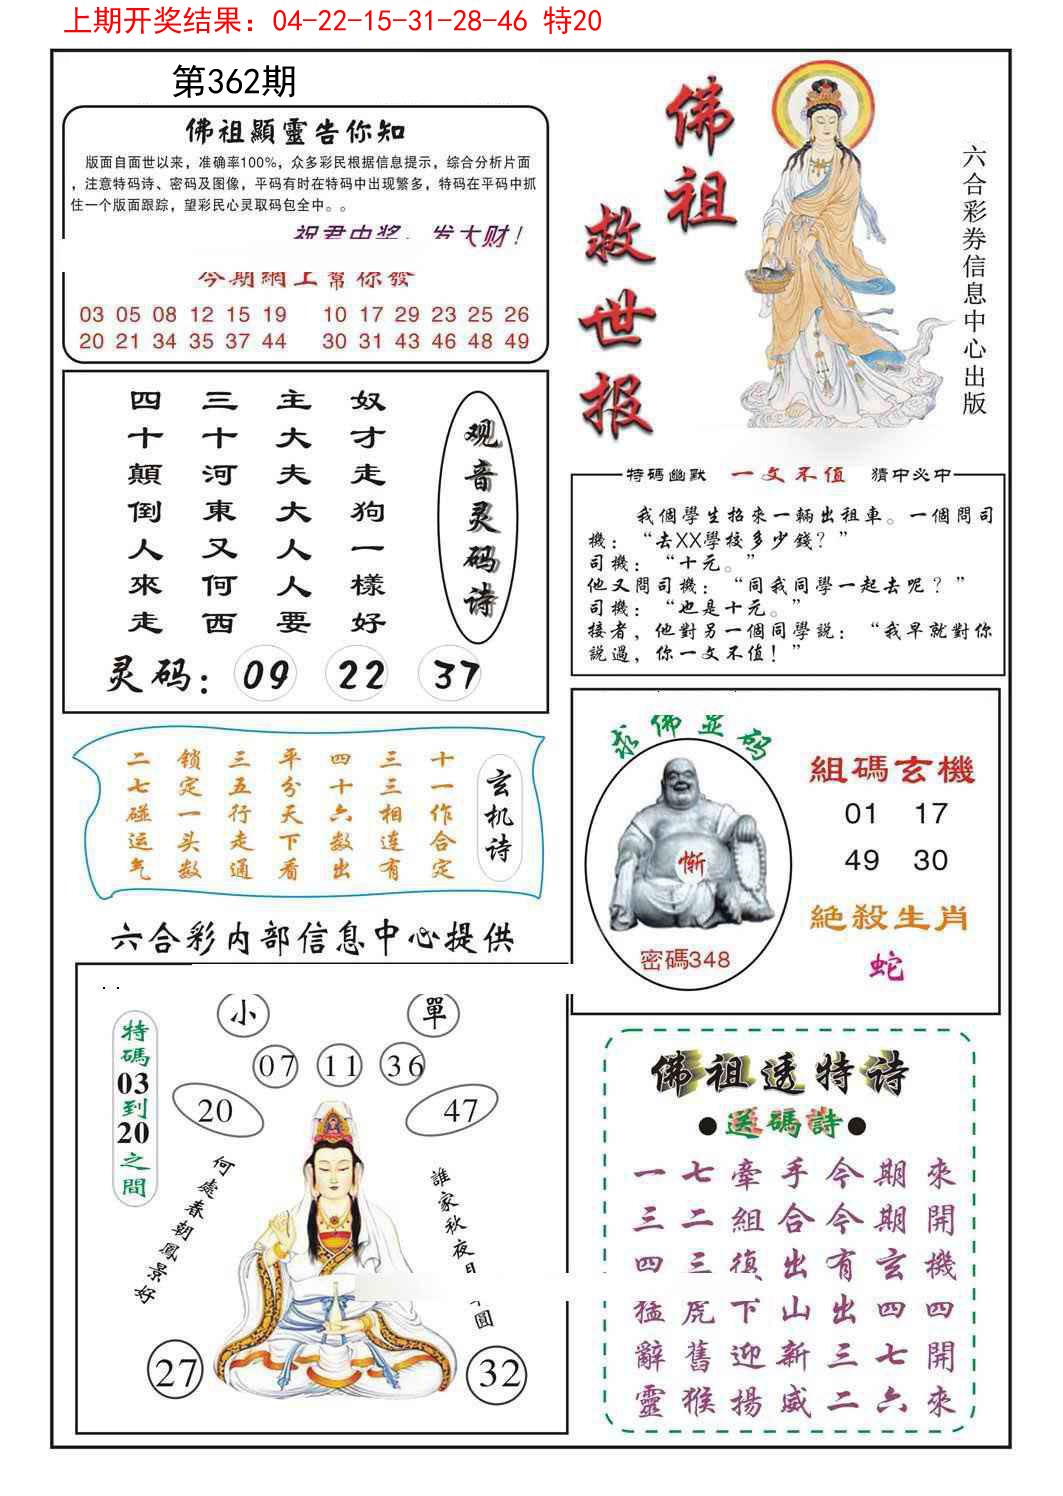 上期开奖结果：04-22-15-31-28-46 特20
第362期
佛祖顯靈告你知
版面自面世以来，准确率100%，众多彩民根据信息提示，综合分析片面
，注意特码诗、密码及图像，平码有时在特码中出现繁多，特码在平码中抓
住一个版面跟踪，望彩民心灵取码包全中。。
祝君中奖，发大财！
今期網上幫你發
03 05 08 12 15 19 10 17 29 23 25 26
20 21 34 35 37 44 30 31 43 46 48 49
佛祖救世报
六合彩券信息中心出版
观音灵码诗
奴才走狗一樣好
主大夫大人人要
三十河東又何西
四十顛倒人來走
灵码：09 22 37
特碼幽默 一文不值 猜中必中
我個學生招來一輛出租車。一個問司
機：“去XX學校多少錢？”
司機：“十元。”
他又問司機：“同我同學一起去呢？”
司機：“也是十元。”
接者，他對另一個同學説：“我早就對你
説過，你一文不值！”
玄机诗
十一作合定
三三相连有
四十六数出
平分天下看
三五行走通
锁定一头数
二七碰运气
求佛显码
惭
密碼348
組碼玄機
01 17
49 30
絕殺生肖
蛇
六合彩内部信息中心提供
特碼03到20之間
小 單
07 11 36
20 47
何處春朝鳳景好
誰家秋夜月
圓
27 32
佛祖透特诗
●送碼詩●
一七牽手今期來
三二組合今期開
四三復出有玄機
猛虎下山出四四
辭舊迎新三七開
靈猴揚威二六來